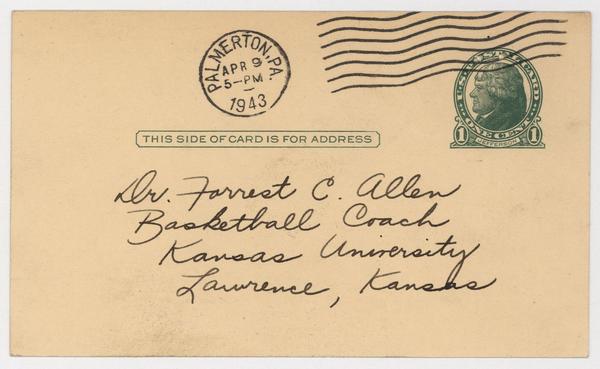 PALMERTON, PA.
APR 9
5-PM
1943
U.S. POSTAL CARD
1 ONE CENT 1
JEFFERSON
THIS SIDE OF CARD IS FOR ADDRESS
Dr. Forrest C. Allen
Basketball Coach
Kansas University
Lawrence, Kansas